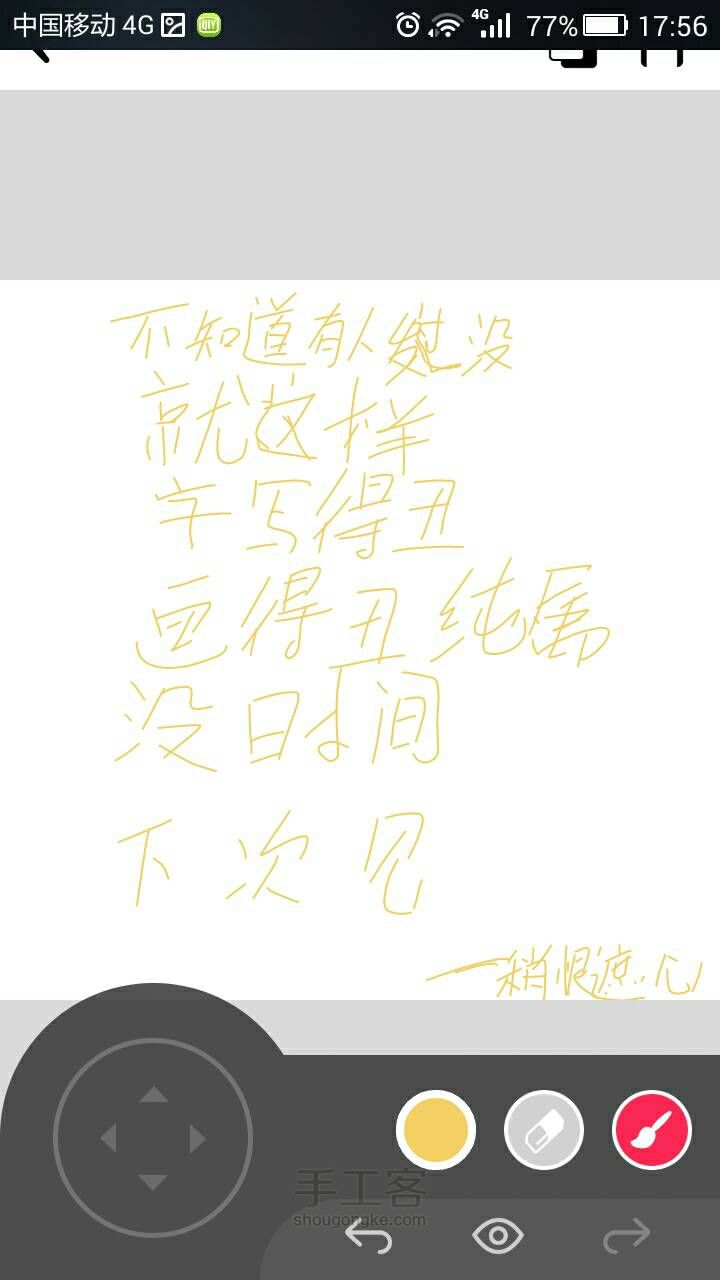 中国移动 4G 4G 77% 17:56
不知道有人 没
就这样
字写得丑
画得丑纯属
没时间
下次见
手工客
shougongke.com